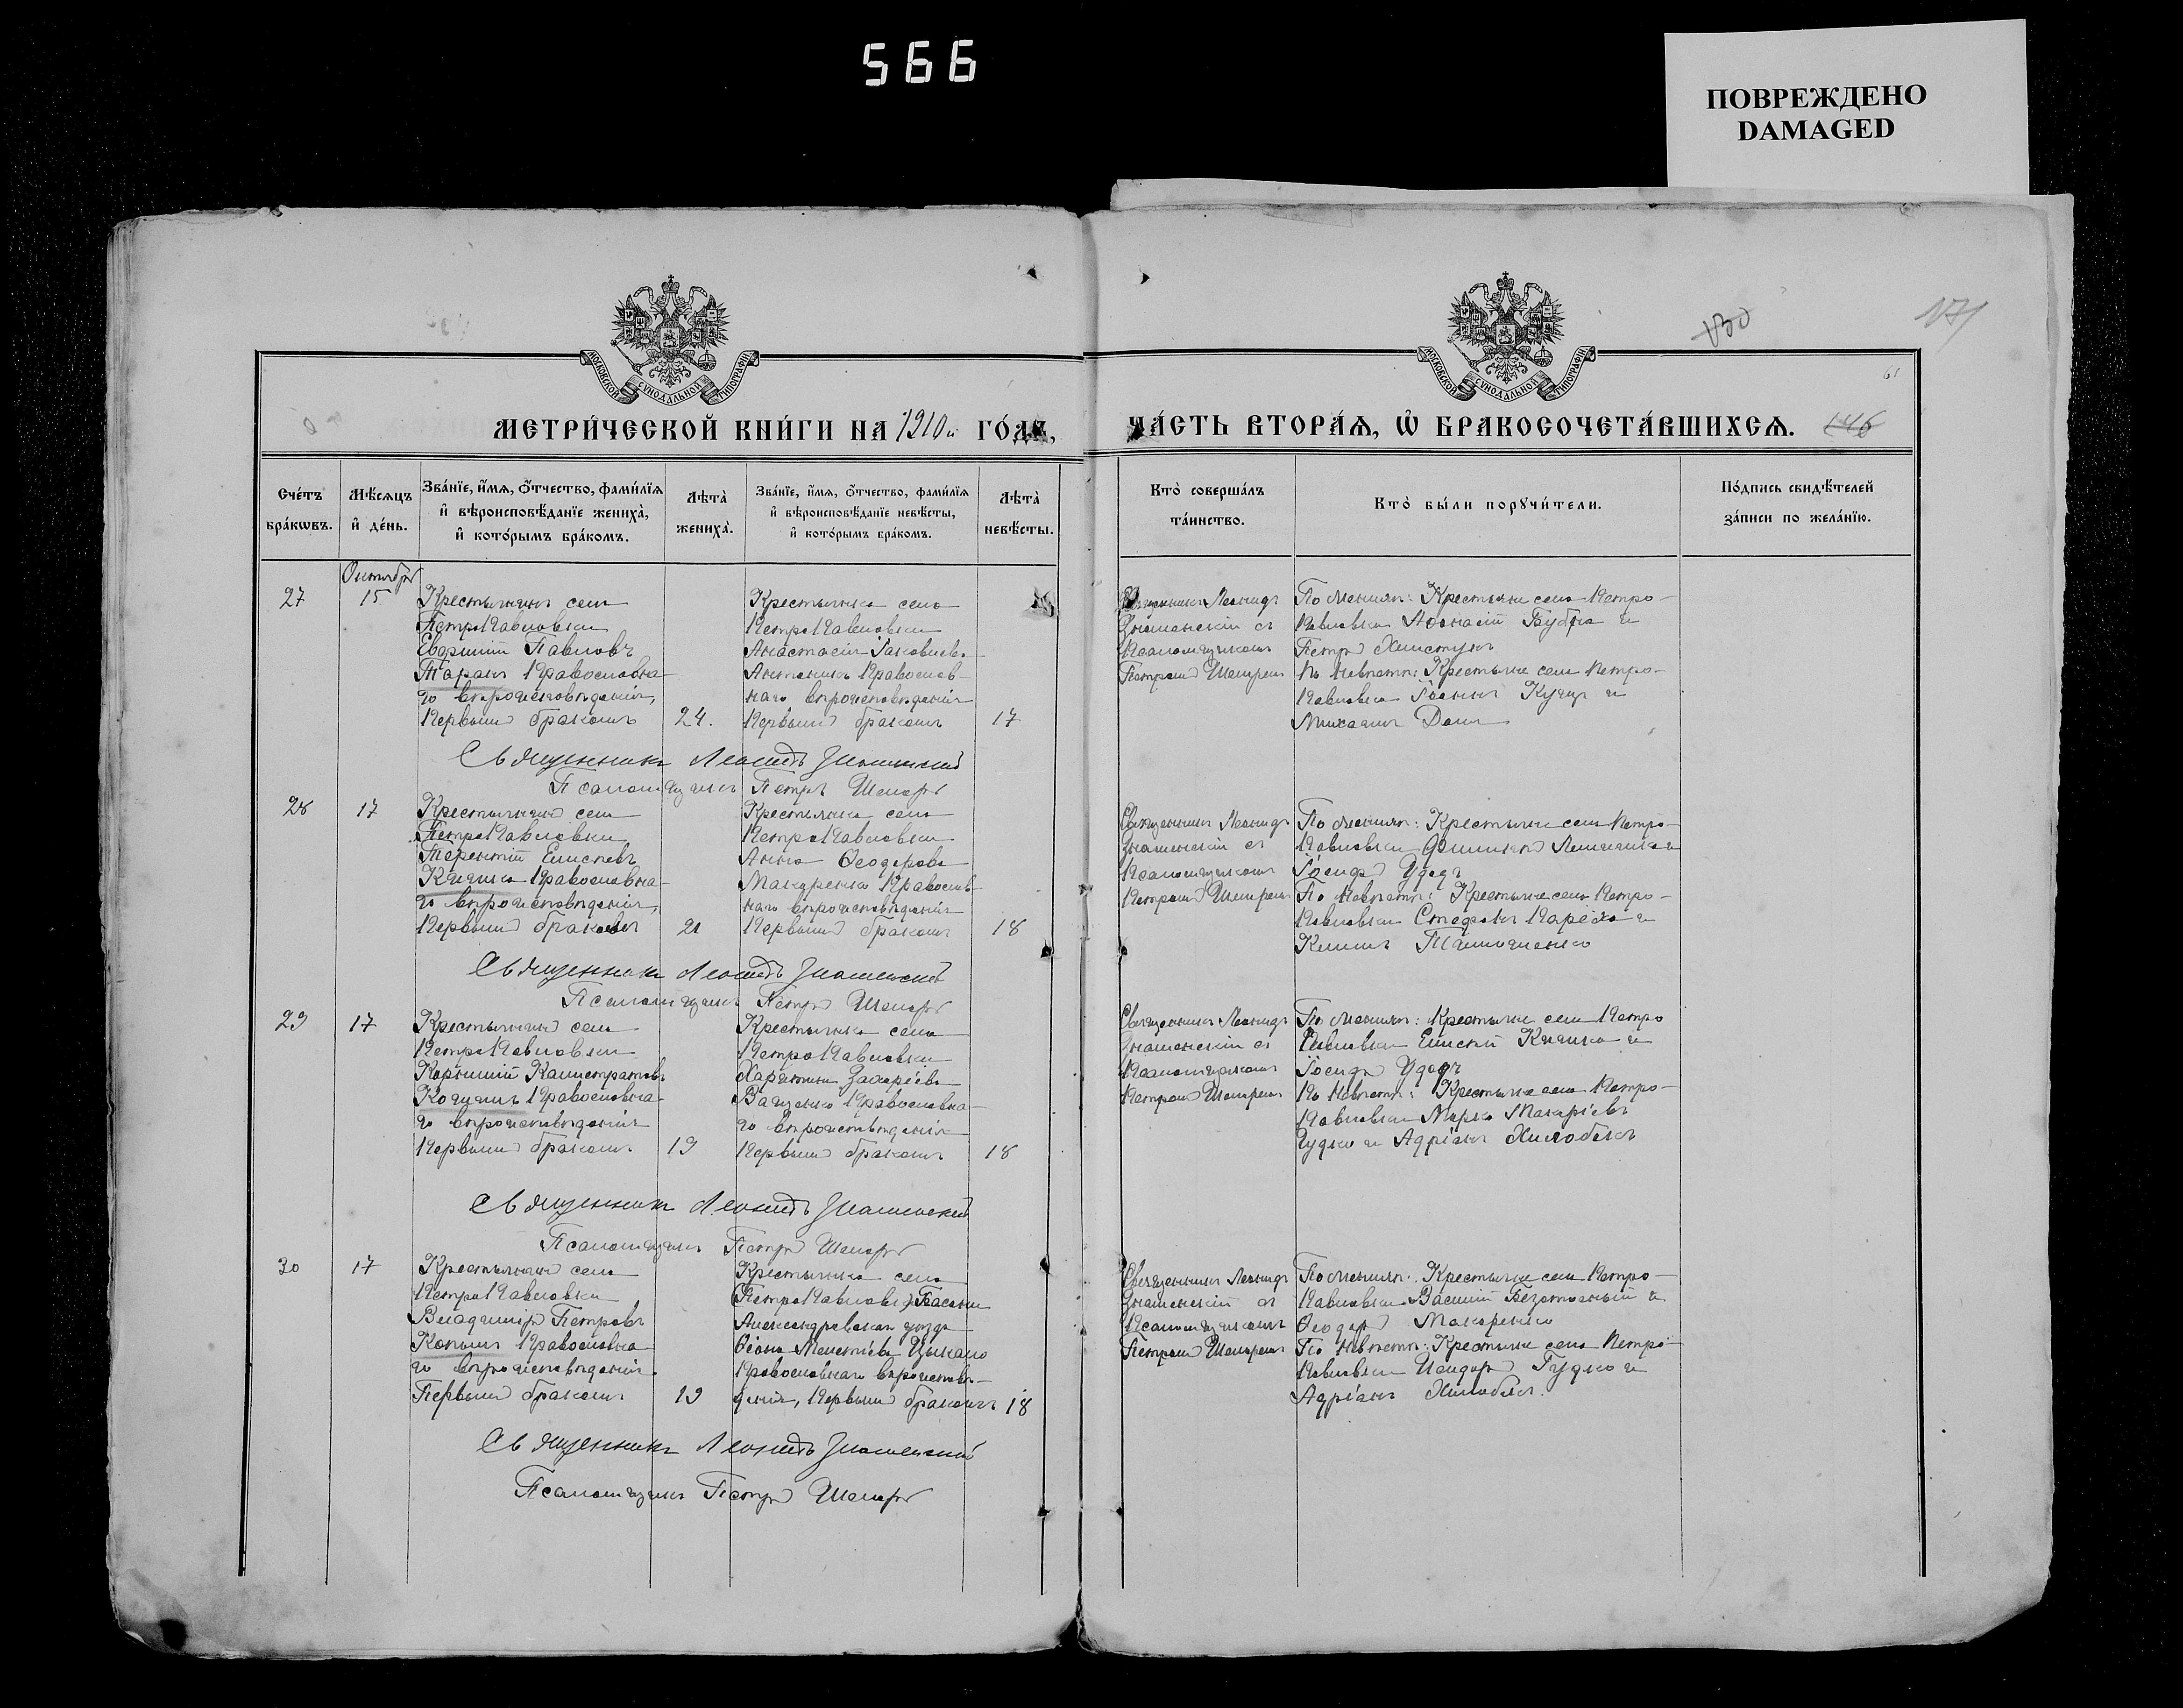 566
ПОВРЕЖДЕНО
DAMAGED
130
171
61
МОСКОВСКОЙ СУНОДАЛЬНОЙ ТИПОГРАФІИ
МОСКОВСКОЙ СУНОДАЛЬНОЙ ТИПОГРАФІИ
МЕТРИ́ЧЕСКОЙ КНИ́ГИ НА 1910й ГО́ДЪ,
ЧА́СТЬ ВТОРА́Ѧ, Ѽ БРАКОСОЧЕТА́ВШИХСѦ. 146
Сче́тъ бра́кѡвъ.
Мѣ́сѧцъ и҆ де́нь.
Зва́нїе, и҆́мѧ, ѻ҆́тчество, фами́лїѧ
и҆ вѣроисповѣ́данїе жениха̀,
и҆ кото́рымъ бра́комъ.
Лѣта̀ жениха̀.
Зва́нїе, и҆́мѧ, ѻ҆́тчество, фами́лїѧ
и҆ вѣроисповѣ́данїе невѣ́сты,
и҆ кото́рымъ бра́комъ.
Лѣта̀ невѣ́сты.
Кто̀ соверша́лъ
та́инство.
Кто̀ бы́ли порꙋчи́тели.
По́дпись свидѣ́телей
за́писи по жела́нїю.
Октября
27
15
Крестьянинъ села
ПетроПавловки
Евфимій Павловъ
Таранъ Православна-
го вѣроисповѣданія,
Первымъ бракомъ
24.
Крестьянка села
ПетроПавловки
Анастасія Іаковлева
Православ-
наго вѣроисповѣданія
Первымъ бракомъ
17
Священникъ Леонидъ
Знаменскій съ
Псаломщикомъ
Петромъ
По женихѣ: Крестьяне села Петро-
павловки и
Петръ
По невѣстѣ: Крестьяне села Петро-
павловки Іоаннъ Куцъ и
Михаилъ
Священникъ Леонидъ Знаменскій
Псаломщикъ Петръ
28
17
Крестьянинъ села
ПетроПавловки
Терентій
Кичико Православна-
го вѣроисповѣданія,
Первымъ бракомъ
21
Крестьянка села
ПетроПавловки
Анна Ѳеодорова
Макаренко Православ-
наго вѣроисповѣданія
Первымъ бракомъ
18
Священникъ Леонидъ
Знаменскій съ
Псаломщикомъ
Петромъ
По женихѣ: Крестьяне села Петро-
павловки Филиппъ и
Іосифъ Удодъ
По невѣстѣ: Крестьяне села Петро-
павловки Стефанъ и
Тимошенко
Священникъ Леонидъ Знаменскій
Псаломщикъ Петръ
29
17
Крестьянинъ села
ПетроПавловки
Корнилій Калистратовъ
Православна-
го вѣроисповѣданія
Первымъ бракомъ
19
Крестьянка села
ПетроПавловки
Харитина Захаріева
Ващенко Православна-
го вѣроисповѣданія
Первымъ бракомъ
18
Священникъ Леонидъ
Знаменскій съ
Псаломщикомъ
Петромъ
По женихѣ: Крестьяне села Петро
Павловки Кичико и
Іосифъ Удодъ
По невѣстѣ: Крестьяне села Петро-
павловки Марко Макаріевъ
Гудко и Адріанъ Хилобокъ
Священникъ Леонидъ Знаменскій
Псаломщикъ Петръ
30
17
Крестьянинъ села
ПетроПавловки
Владиміръ Петровъ
Православна
го вѣроисповѣданія.
Первымъ бракомъ
19
Крестьянка села
Александровскаго уѣзда
Цыкало
Православнаго вѣроисповѣ-
данія, Первымъ бракомъ
18
Священникъ Леонидъ
Знаменскій съ
Псаломщикомъ
Петромъ
По женихѣ: Крестьяне села Петро-
павловки Василій и
Ѳеодоръ Макаренко
По невѣстѣ: Крестьяне села Петро-
павловки Исидоръ Гудко и
Адріанъ Хилобокъ.
Священникъ Леонидъ Знаменскій
Псаломщикъ Петръ